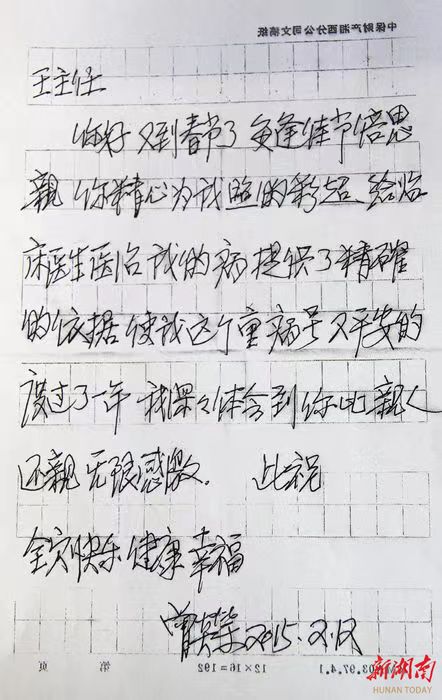 中保财产湘西分公司文稿纸
王主任
你好 又到春节了 每逢佳节倍思
亲 你精心为我照的彩超、给临
床医生医治我的病提供了精确
的依据 使我这个重病号又平安的
度过了一年 我深深体会到你比亲人
还亲 无限感激. 此祝
全家快乐 健康 幸福
曾 荣 2015.2.12
第 页
12×16=192
03.97.4.1
新湖南
HUNAN TODAY